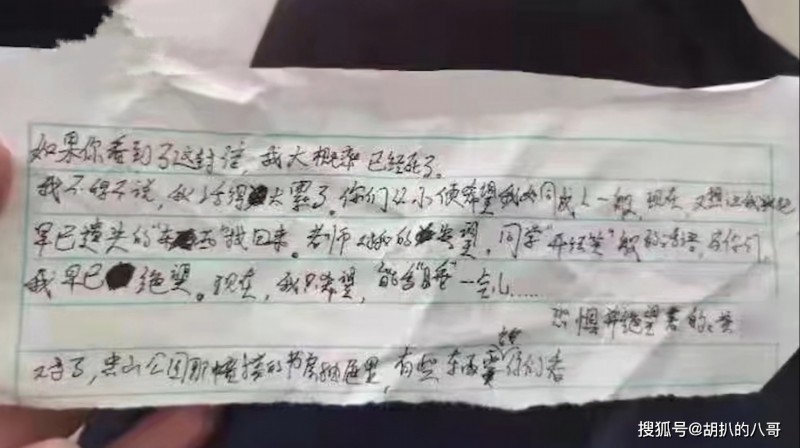 如果你看到了这封信，我大概率已经死了。
我不得不说，我活得太累了。你们从小便希望我如同成人一般，现在，又想让我找起
早已遗失的“东西”找回来。老师对我的失望，同学“开玩笑”般的话语，与你们，
我早已绝望。现在，我只希望，能多“睡”一会儿……
恐惧并绝望着的
对了，山公园那幢楼的书房抽屉里，有些东西需你们看
搜狐号@胡扒的八哥